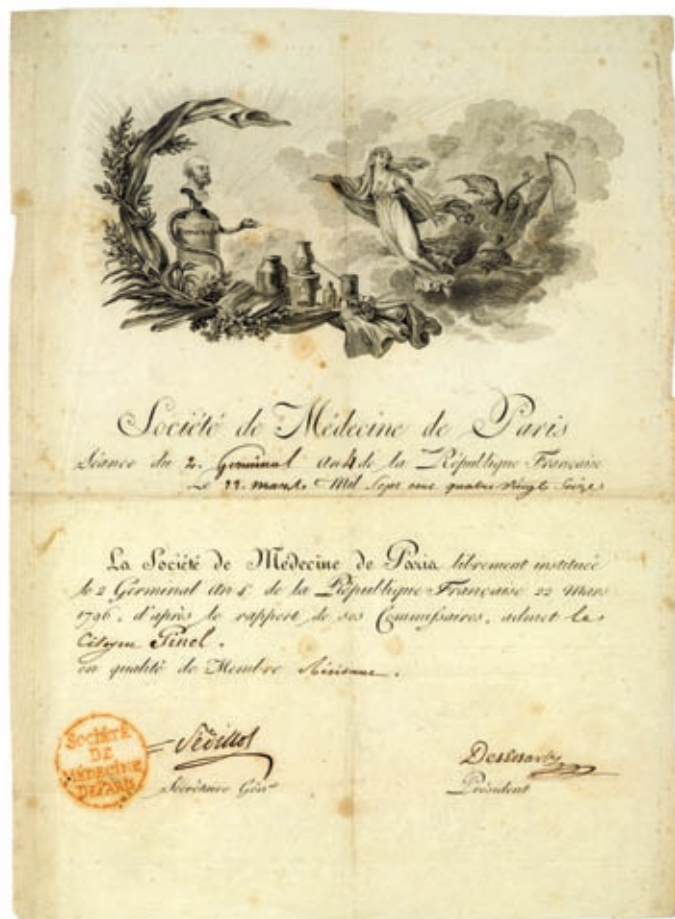 Société de Médecine de Paris
Séance du 2. Germinal An 4 de la République Française
Le 22 mars Mil Sept cent quatre Vingt Seize
La Société de Médecine de Paris librement instituée
le 2 Germinal An 4 de la République Française 22 Mars
1796, d'après le rapport de ses Commissaires, admet le
Citoyen Pinel.
en qualité de Membre
Société
DE
MÉDECINE
DE PARIS
Sédillot
Secrétaire Génl
Président